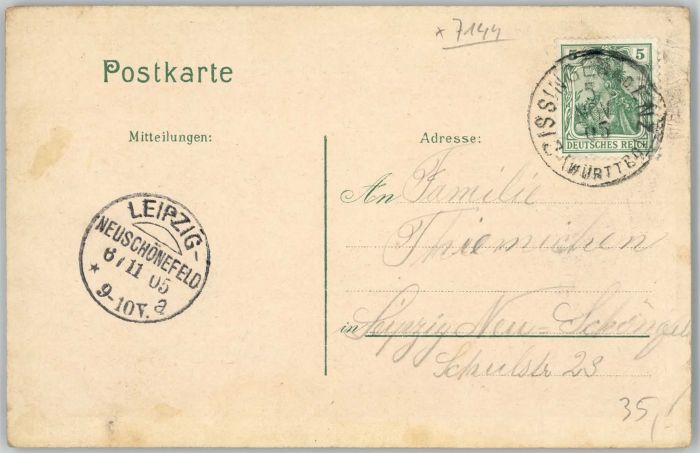 x 7144
Postkarte
5 5
DEUTSCHES REICH
GISSINGEN
5
NOV
05
(WÜRTTBG.)
Mitteilungen:
Adresse:
An Familie
Thiemichen
LEIPZIG-
NEUSCHÖNEFELD
6/11 05
* 9-10V. a
in Leipzig Neu=Schönef
Schulstr 23
35,-